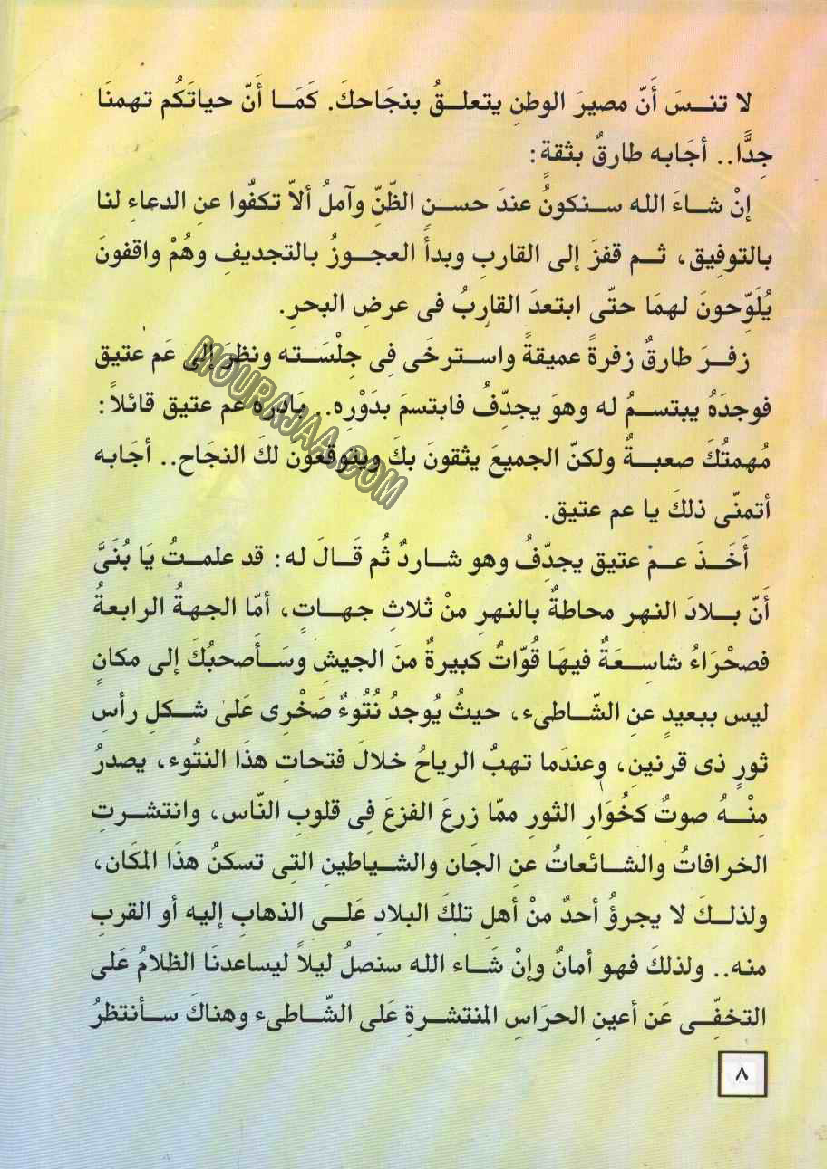 لا تنــسَ أَنّ مصيرَ الوطنِ يتعلــقُ بنجَاحكَ. كَمَــا أَنّ حياتَكُم تهمنَا
جِدًّا.. أجَابه طارقٌ بثقةٍ:
إنْ شــاءَ الله ســنكونُ عندَ حســنِ الظّنِّ وآملُ ألاّ تكفُوا عنِ الدعاءِ لنا
بالتوفيق، ثــم قفزَ إلى القاربِ وبدأَ العجــوزُ بالتجديفِ وهُمْ واقفونَ
يُلَوِّحونَ لهمَا حتّى ابتعدَ القاربُ فى عرضِ البحرِ.
زفــرَ طارقٌ زفرةً عميقةً واســترخَى فِى جِلْسَــته ونظرَ إلى عَم عتيق
فوجدَهُ يبتســمُ له وهوَ يجدِّفُ فابتسمَ بدَوْرِه.. بَادره عم عتيق قائلاً:
مُهمتُكَ صعبــةٌ ولكنّ الجميعَ يثقونَ بكَ ويتوقعونَ لكَ النجَاح.. أجَابه
أتمنّى ذلكَ يا عم عتيق.
أَخَــذَ عــمْ عتيق يجدِّفُ وهو شــاردٌ ثُم قَــالَ له: قد علمــتُ يَا بُنَىَّ
أَنّ بــلادَ النهر محاطةٌ بالنهرِ منْ ثلاثِ جهــاتٍ، أمّا الجهةُ الرابعةُ
فصحْرَاءُ شاسِــعَةٌ فيهَا قُوّاتٌ كبيرةٌ منَ الجيشِ وسَــأصحبُكَ إلى مكانٍ
ليس ببعيدٍ عنِ الشّــاطىء، حيثُ يُوجدُ نُتُوءٌ صَخْرِى عَلىٰ شــكلِ رأسِ
ثورٍ ذى قرنينِ، وعندَما تهبُ الرياحُ خلالَ فتحاتِ هذَا النتُوء، يصدرُ
مِنْــهُ صوتٌ كخُوَارِ الثورِ ممّا زرعَ الفزعَ فِى قلوبِ النّاس، وانتشــرتِ
الخرافاتُ والشــائعاتُ عنِ الجَان والشــياطينِ التِى تسكنُ هذَا المكَان،
ولذلــكَ لا يجرؤُ أحدٌ منْ أهلِ تلكَ البلادِ عَلــى الذهابِ إليه أو القربِ
منه.. ولذلكَ فهو أمانٌ وإنْ شَــاء الله سنصلُ ليلاً ليساعدنَا الظلامُ عَلى
التخفِّــى عَن أعينِ الحرَاسِ المنتشــرةِ عَلى الشّــاطىء وهناكَ ســأنتظرُ
٨
MOURAJAA.COM